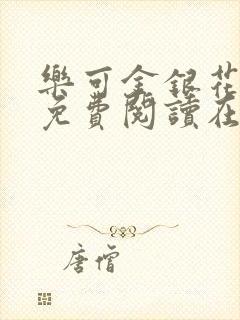 樂可金銀花
免費閱讀在
唐僧